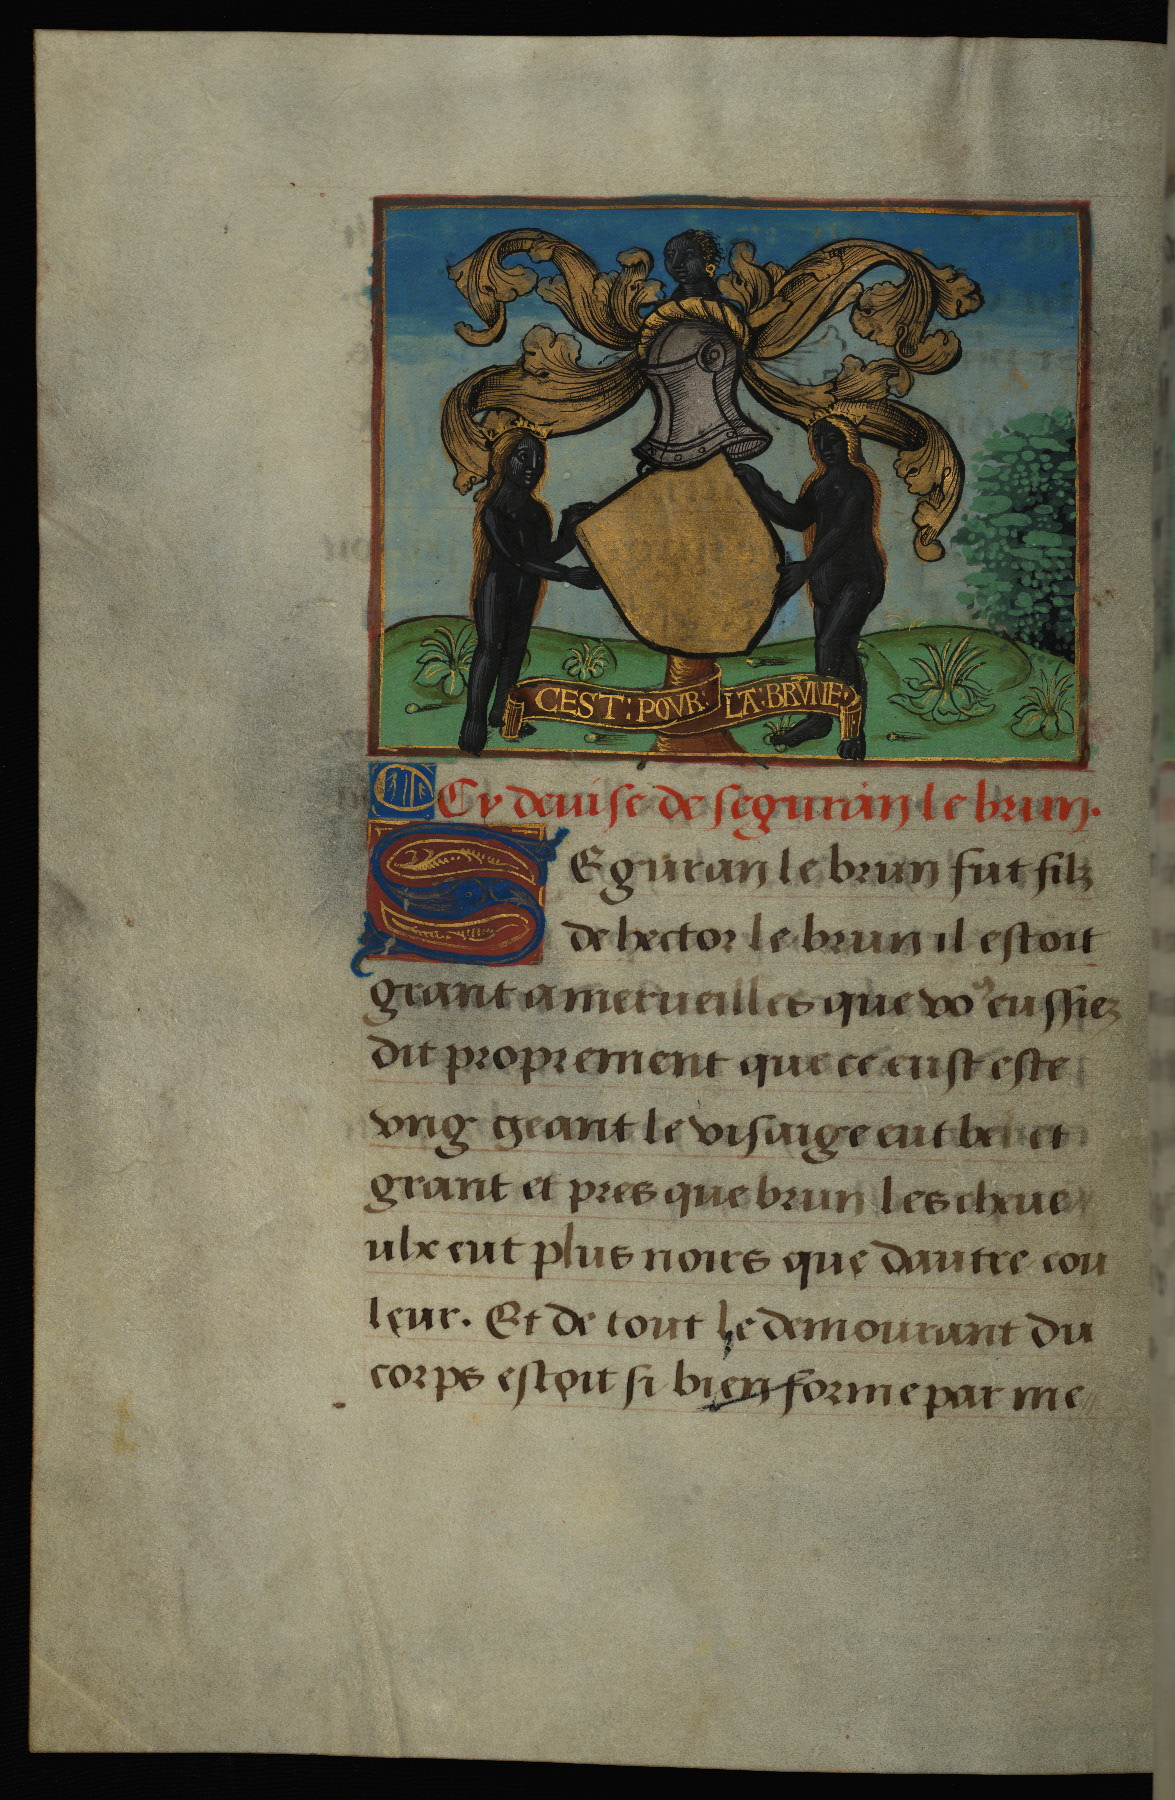 CEST : POVR : LA · BRVNE ·
Cy deuise de seguran le brun.
SEguran le brun fut filz
de hector le brun il estoit
grant a merueilles que vo⁹ eussiez
dit proprement que ce eust este
vng geant le visaige eut bel et
grant et pres que brun les cheue
ulx eut plus noirs que dautre cou
leur. Et de tout le demourant du
corps estoit si bien forme par me